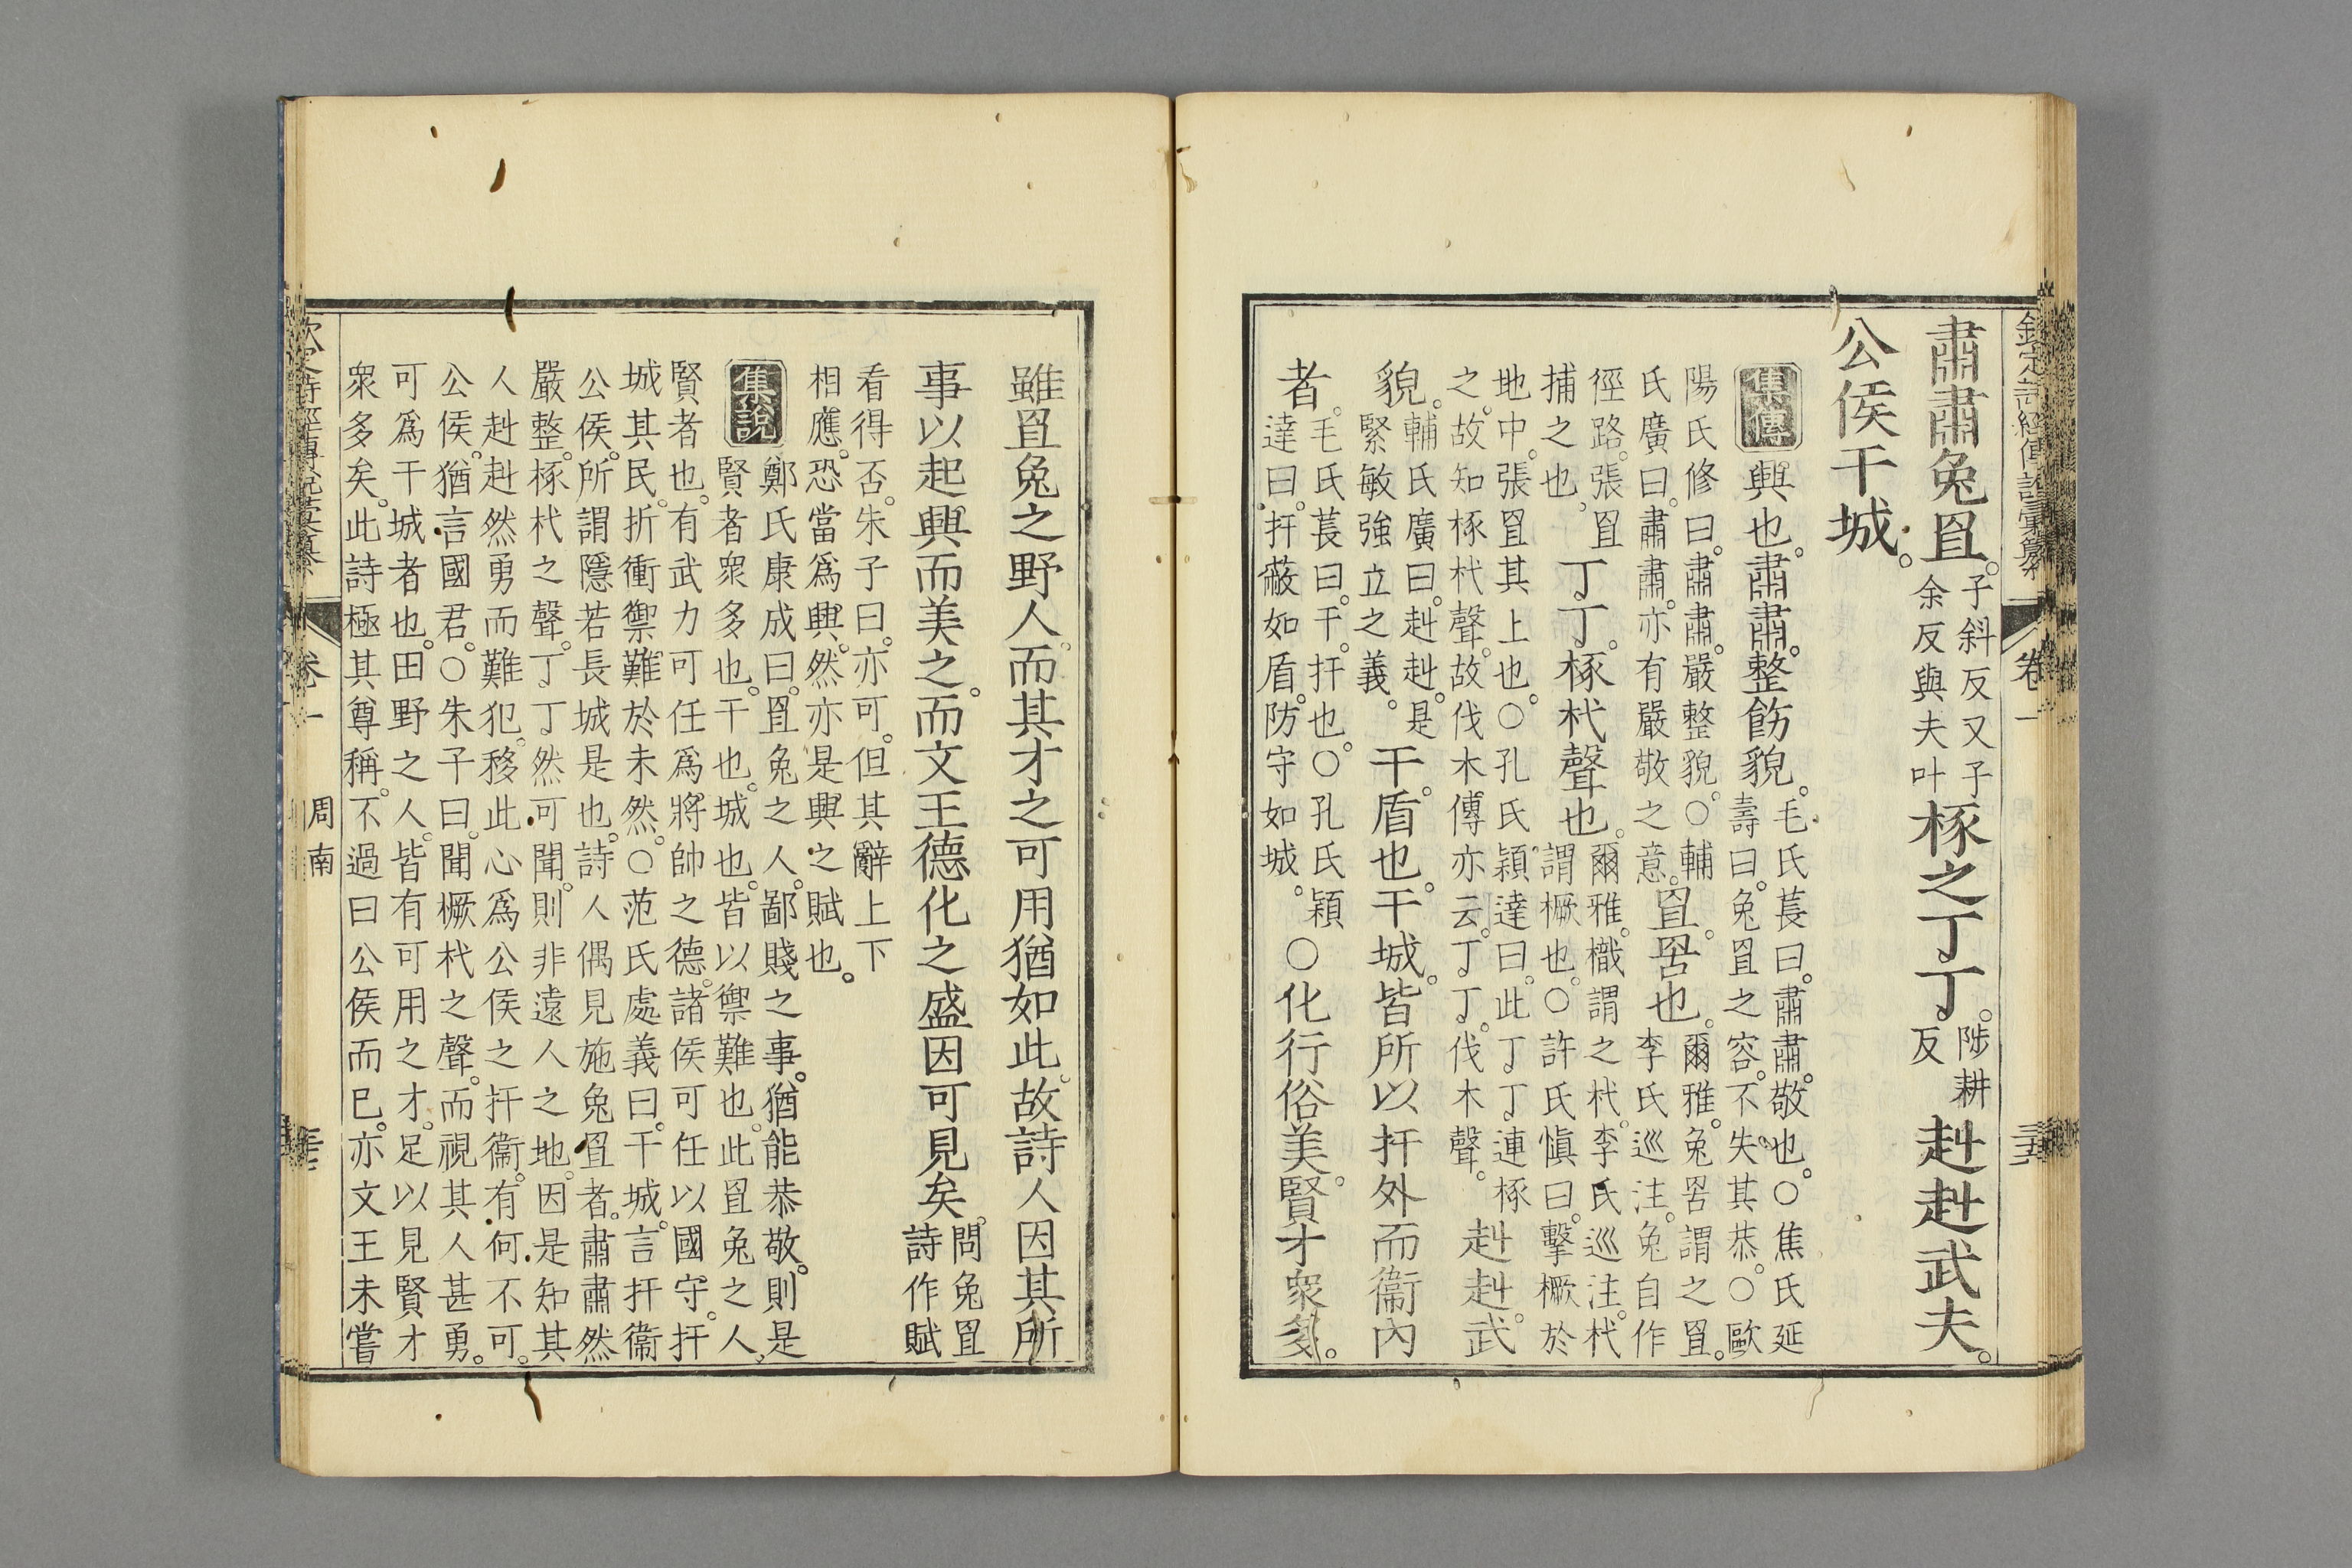 欽定詩經傳說彙纂 卷一
肅肅兔罝。子斜反又子余反與夫叶椓之丁丁。陟耕反赳赳武夫。
公侯干城。
集傳 興也。肅肅。整飭貌。毛氏萇曰。肅肅。敬也。○焦氏延壽曰。兔罝之容。不失其恭。○歐
陽氏修曰。肅肅。嚴整貌。○輔氏廣曰。肅肅。亦有嚴敬之意。罝罟也。爾雅。兔罟謂之罝。李氏巡注。兔自作
徑路。張罝捕之也。丁丁。椓杙聲也。爾雅。樴謂之杙。李氏巡注。杙謂橛也。○許氏愼曰。擊橛於
地中。張罝其上也。○孔氏穎達曰。此丁丁連椓之。故知椓杙聲。故伐木傳亦云。丁丁。伐木聲。赳赳。武
貌。輔氏廣曰。赳赳。是緊敏強立之義。干。盾也。干城。皆所以扞外而衞內
者。毛氏萇曰。干。扞也。○孔氏穎達曰。扞蔽如盾。防守如城。○化行俗美。賢才衆多。
雖罝兔之野人。而其才之可用猶如此。故詩人因其所
事以起興而美之。而文王德化之盛因可見矣。問兔罝詩作賦
看得否。朱子曰。亦可。但其辭上下
相應。恐當爲興。然亦是興之賦也。
集說 鄭氏康成曰。罝兔之人。鄙賤之事。猶能恭敬。則是
賢者衆多也。干也。城也。皆以禦難也。此罝兔之人。
賢者也。有武力可任爲將帥之德。諸侯可任以國守。扞
城其民。折衝禦難於未然。○范氏處義曰。干城。言扞衞
公侯。所謂隱若長城是也。詩人偶見施兔罝者。肅肅然
嚴整。椓杙之聲。丁丁然可聞。則非遠人之地。因是知其
人赳赳然勇而難犯。移此心爲公侯之扞衞。有何不可。
公侯。猶言國君。○朱子曰。聞橛杙之聲。而視其人甚勇。
可爲干城者也。田野之人。皆有可用之才。足以見賢才
衆多矣。此詩極其尊稱。不過曰公侯而已。亦文王未嘗
欽定詩經傳說彙纂 卷一 周南